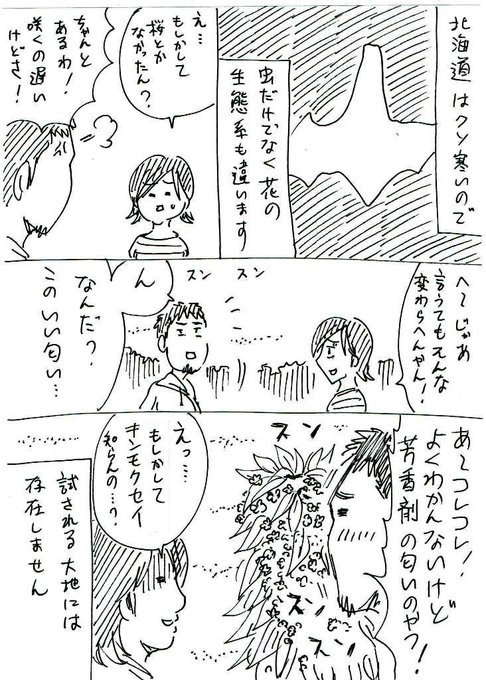 北海道はクソ寒いので
虫だけでなく花の
生態系も違います
え…
もしかして
桜とか
なかったん？
ちゃんと
あるわ！
咲くの遅い
けどさ！
へ～じゃあ
言うてもそんな
変わらへんやん！
スン
スン
ん
なんだ？
このいい匂い…
あ～コレコレ！
よくわかんないけど
芳香剤の匂いのやつ！
スン
スン
スン
えっ…
もしかして
キンモクセイ
知らんの…？
試される大地には
存在しません